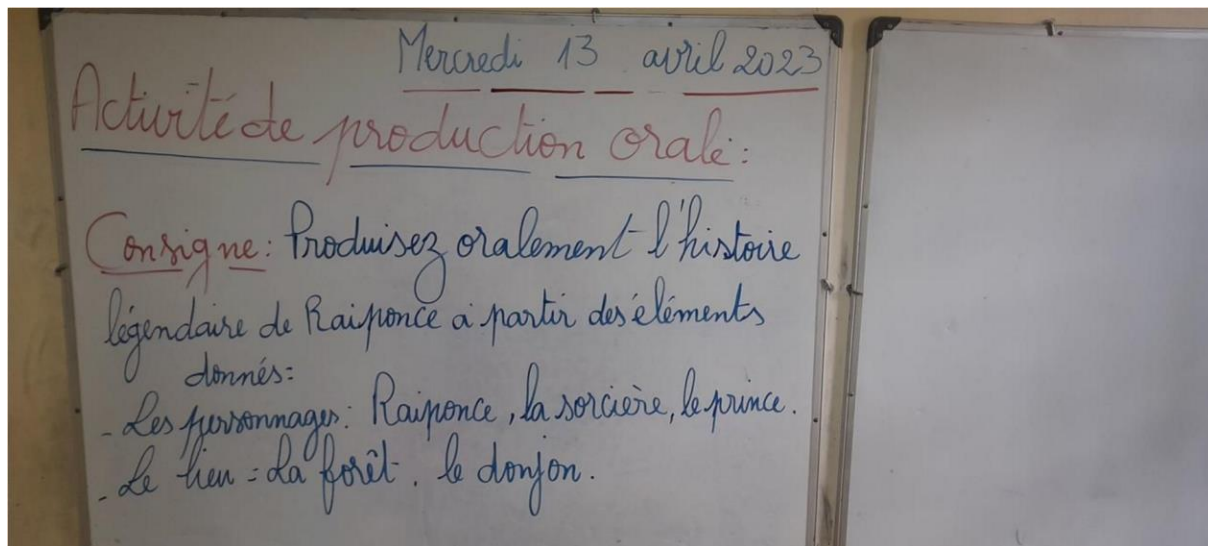 Mercredi 13 avril 2023
Activité de production orale :
Consigne : Produisez oralement l'histoire
légendaire de Raiponce à partir des éléments
donnés :
- Les personnages : Raiponce, la sorcière, le prince.
- Le lieu : La forêt, le donjon.